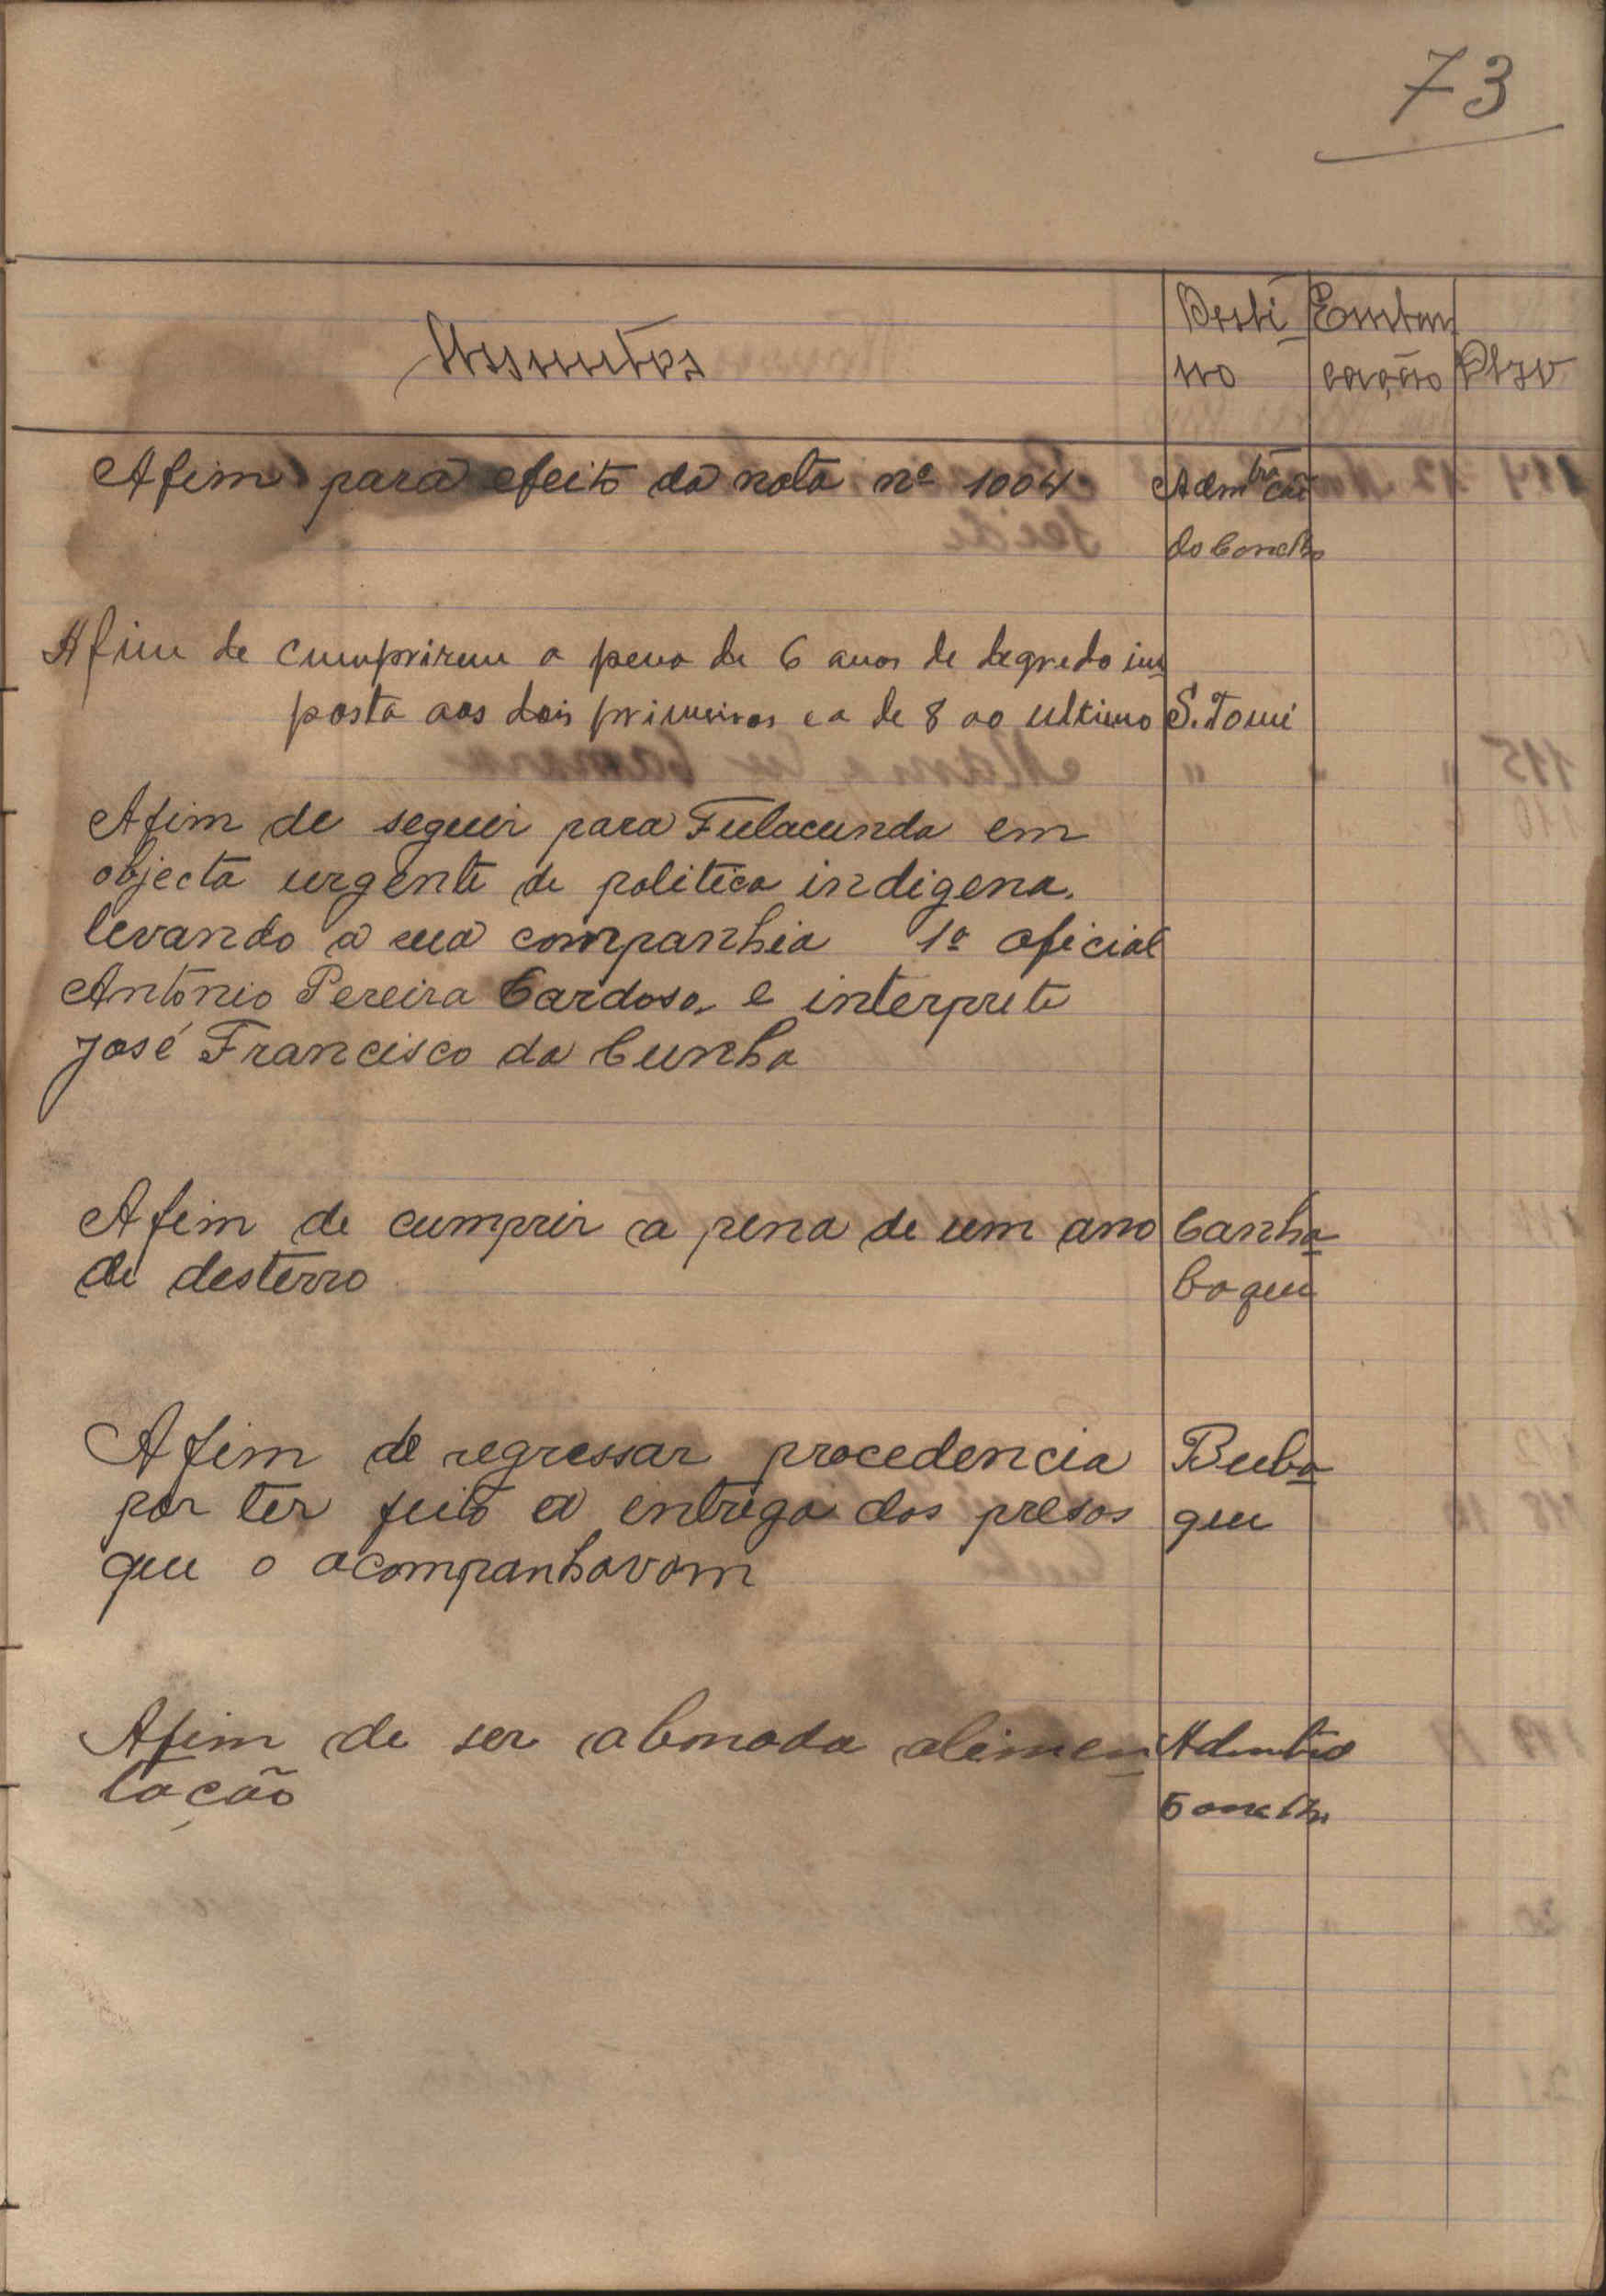 73
Assuntos
Desti
no
Obsv
Afim para efeito da nota nº 1004
Admtração
do Concho
Afim de cumprirem a pena de 6 anos de degredo im
posta aos dois primeiros e a de 8 ao ultimo S. Tomé
Afim de seguir para Fulacunda em
objecta urgente de politica indigena.
levando a sua companhia 1º oficial
António Pereira Cardoso, e interprete
José Francisco da Cunha
Afim de cumprir a pena de um ano Canha
de desterro boque
Afim de regressar procedencia Buba
por ter feito a entrega dos presos que
que o acompanhavam
Afim de ser abonada alimen
tação
Concho